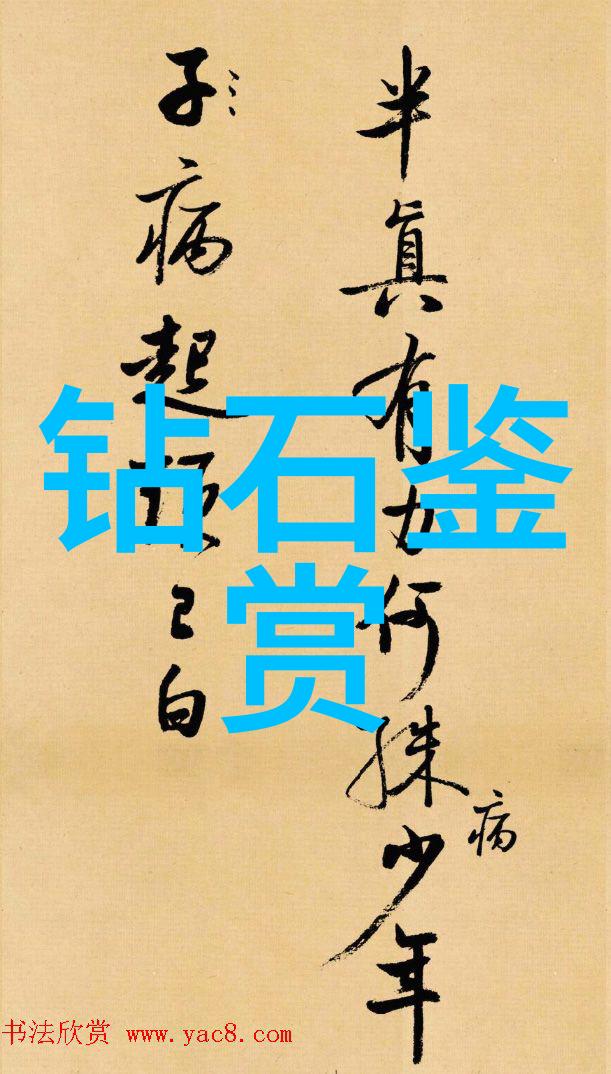 半真有力何殊少年
病
子病起已白
钻石鉴
赏
书法欣赏 www.yac8.com